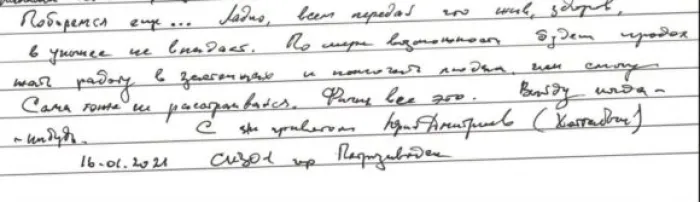 Поборемся еще... Ладно, всем передай что жив, здоров,
в уныние не впадает. По мере возможности будет продол
жать работу в застенках и помогать людям, чем смогу
Сама тоже не расстраивайся. Фигня все это. Выйду когда-
-нибудь. С эк приветом Юрий Дмитриев (Хоттабыч)
16.01.2021 СИЗО1 гор Петрозаводск